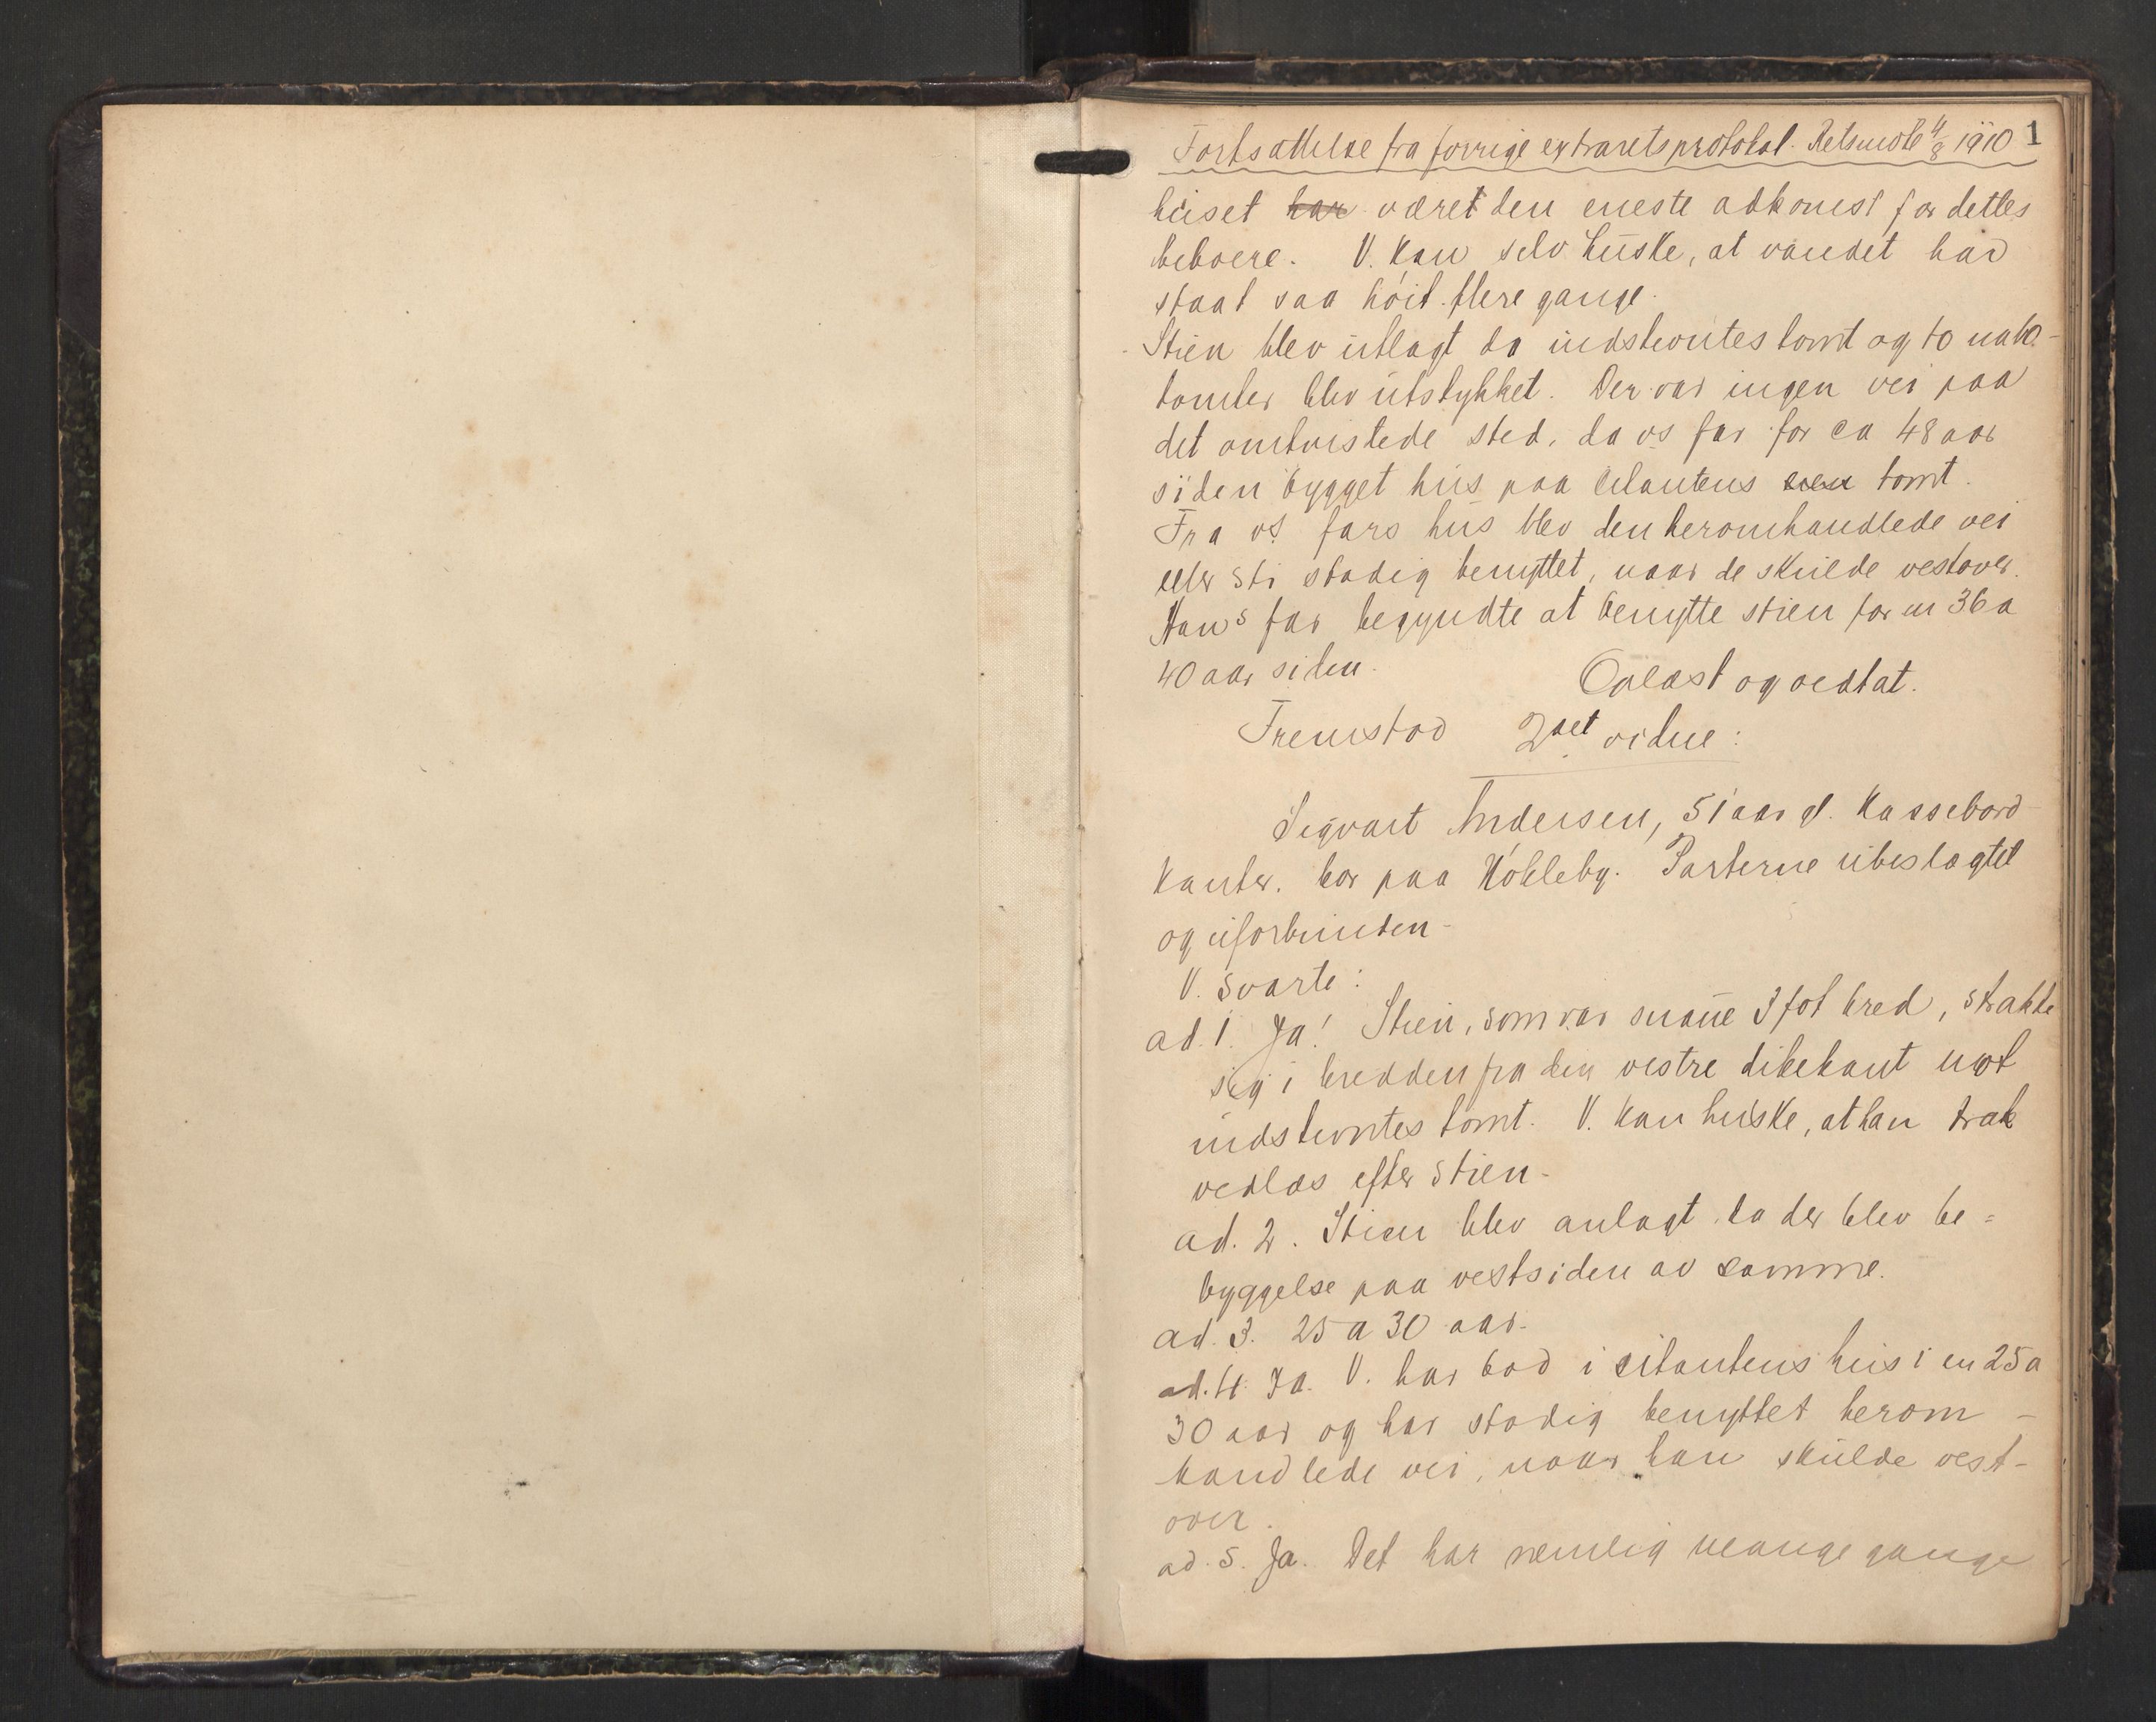 Fortsættelse fra forrige extraretsprotokol. Retsmøte 4/8 1910 1
huset har været den eneste adkomst for dettes
beboere. V. kan selv huske, at vandet har
staat saa høit flere gange.
Stien blev utlagt da indstevntes tomt og to nabo-
tomter blev utstykket. Der var ingen vei paa
det omtvistede sted, da vs far for ca 48 aar
siden bygget hus paa citantens tomt.
Fra vs fars hus blev den heromhandlede vei
eller sti stadig benyttet, naar de skulde vestover.
Hans far begyndte at benytte stien for en 36 a
40 aar siden. Oplæst og vedtat.
Fremstod 2det vidne:
Sigvart Andersen, 51 aar gl. Kassebord-
kanter. bor paa Kobleby. Parterne ubeslægtet
og uforbunden-
V. svarte:
ad. 1. Ja! Stien, som var snaue 3 fot bred, strakte
sig i bredden fra den vestre dikekant mot
indstevntes tomt. V. kan huske, at han trak
vedlas efter stien-
ad. 2. Stien blev anlagt da der blev be=
byggelse paa vestsiden av samme.
ad. 3. 25 a 30 aar.
ad. 4. Ja. V. har bod i citantens hus i en 25 a
30 aar og har stadig benyttet herom-
handlede vei, naar han skulde vest-
over.
ad. 5. Ja. Det har nemlig mange gange